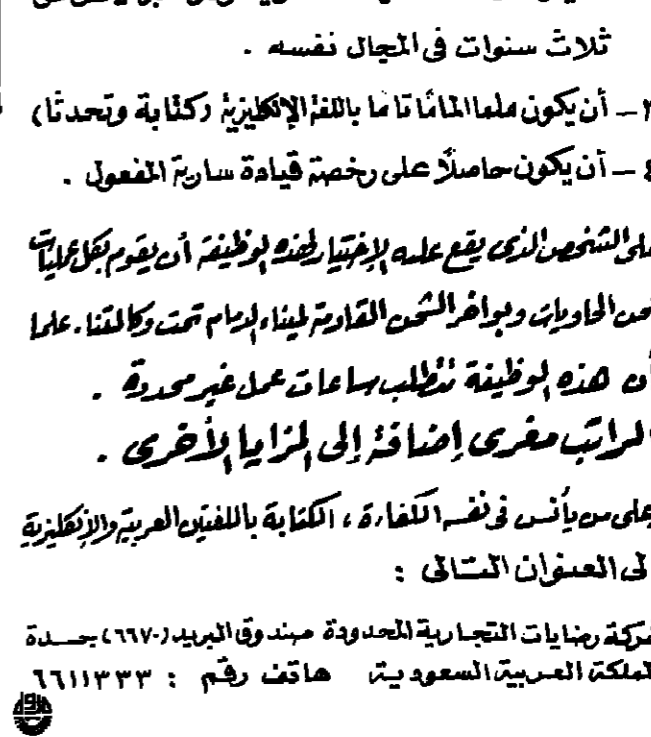 ثلاث سنوات فى المجال نفسه .
٣ – أن يكون ملما الماما تاما باللغة الإنكليزية (كتابة وتحدثا)
٤ – أن يكون حاصلاً على رخصة قيادة سارية المفعول .
على الشخص الذى يقع عليه الإختيار لهذه الوظيفة أن يقوم بكل عمليات
شحن الحاويات وبواخر الشحن القادمة لميناء الدمام تحت وكالتنا . علما
أن هذه الوظيفة تتطلب ساعات عمل غير محدودة .
الراتب مغرى إضافة إلى المزايا الأخرى .
وعلى من يأنس فى نفسه الكفاءة ، الكتابة باللغتين العربية والإنكليزية
الى العنوان التالى :
شركة رضايات التجارية المحدودة صندوق البريد (٦٦٧٠) بجــدة
المملكة العربية السعودية هاتف رقم : ٦٦١١٣٣٣